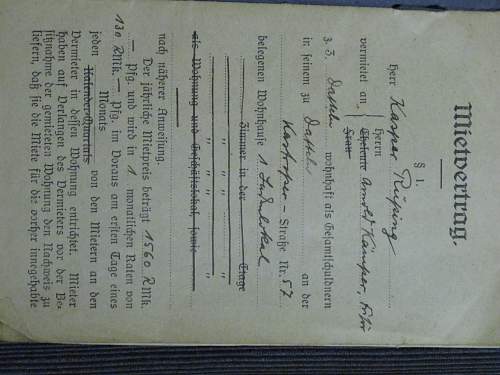 Mietvertrag.
§ 1.
Herr Kasper Rüping
vermietet an Herrn
Frau
Eheleute Arnold Kämper,
z. Z. Datteln wohnhaft als Gesamtschuldnern
in seinem zu Datteln an der
Kastroper- Straße Nr. 57
belegenen Wohnhause 1 Ladenlokal
Zimmer in der Etage
" " "
" " "
als Wohnung und Geschäftslokal, sowie
nach näherer Anweisung.
Der jährliche Mietpreis beträgt 1560 RMk.
— Pfg. und wird in 1 monatlichen Raten von
130 RMk. — Pfg. im Voraus am ersten Tage eines
Monats
jeden Kalender-Quartals von den Mietern an den
Vermieter in dessen Wohnung entrichtet. Mieter
haben auf Verlangen des Vermieters vor der Be-
sitznahme der gemieteten Wohnung den Nachweis zu
liefern, daß sie die Miete für die vorher innegehabte